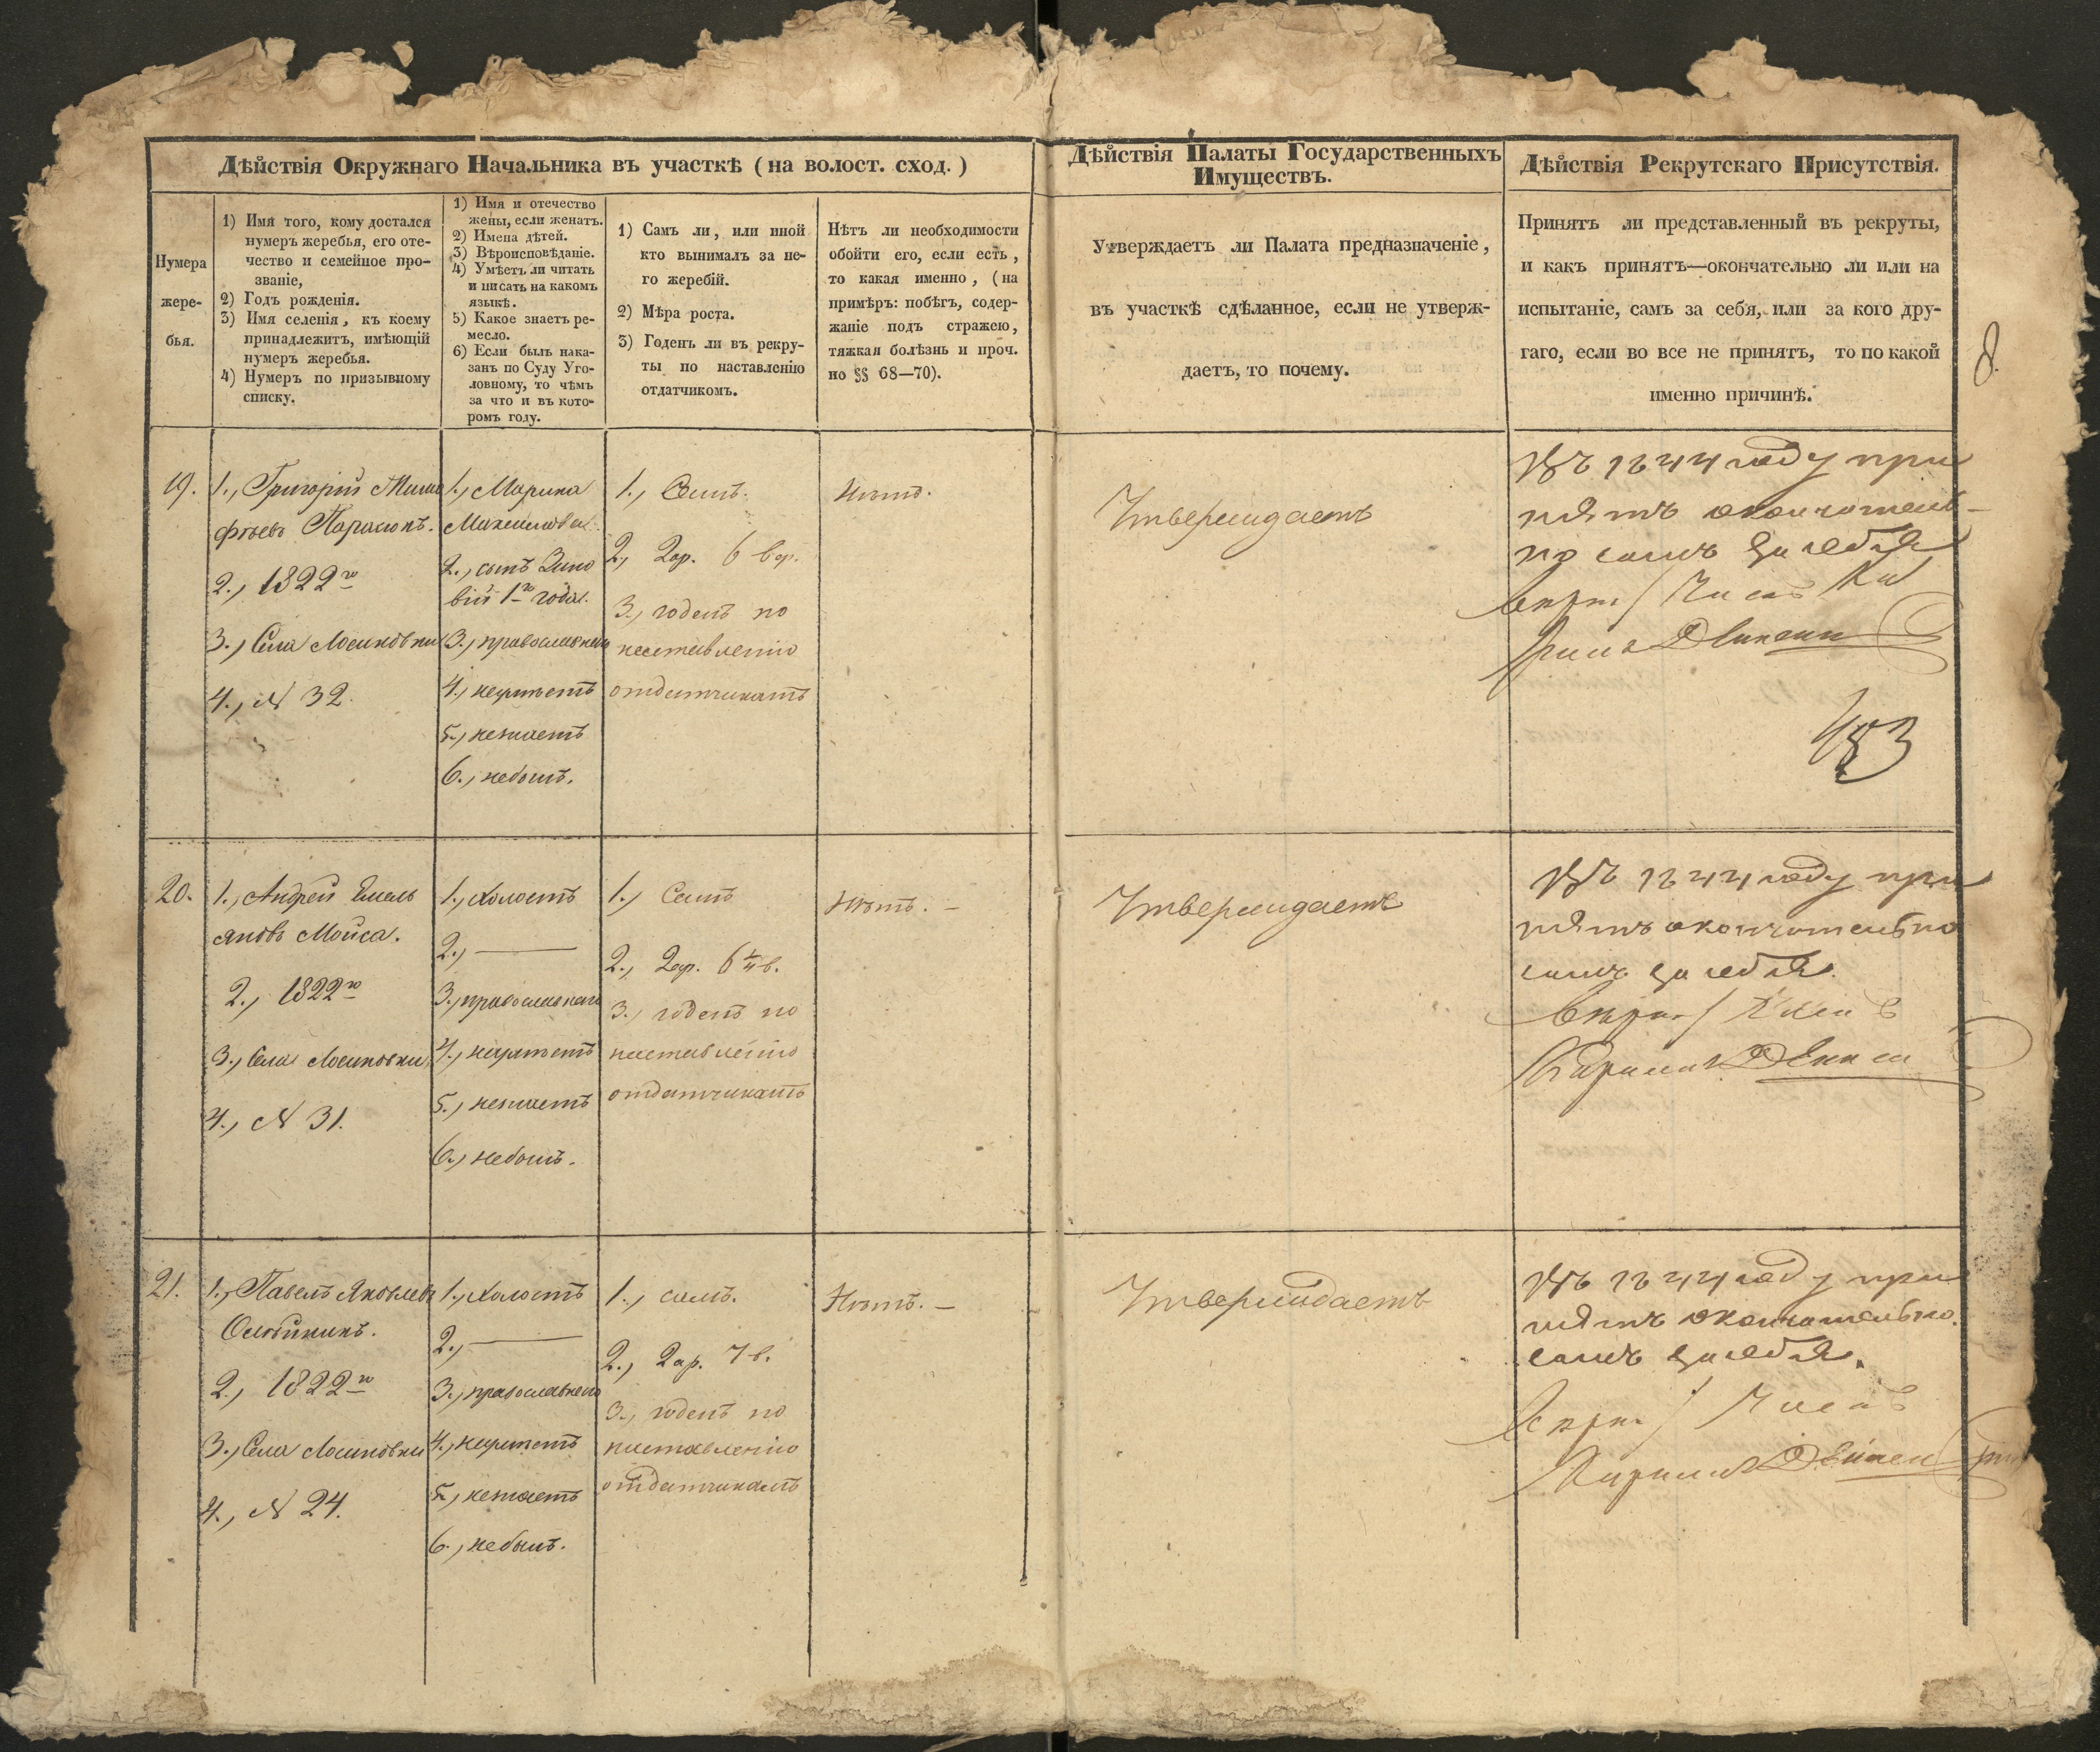 Дѣйствія Окружнаго Начальника въ участкѣ (на волост. сход.)
Нумера
жере-
бья.
1) Имя того, кому достался
нумеръ жеребья, его оте-
чество и семейное про-
званіе,
2) Годъ рожденія.
3) Имя селенія, къ коему
принадлежитъ, имѣющій
нумеръ жеребья.
4) Нумеръ по призывному
списку.
1) Имя и отечество
жены, если женатъ.
2) Имена дѣтей.
3) Вѣроисповѣданіе.
4) Умѣетъ ли читать
и писать на какомъ
языкѣ.
5) Какое знаетъ ре-
месло.
6) Если былъ нака-
занъ по Суду Уго-
ловному, то чѣмъ
за что и въ кото-
ромъ году.
1) Самъ ли, или иной
кто вынималъ за не-
го жеребій.
2) Мѣра роста.
3) Годенъ ли въ рекру-
ты по наставленію
отдатчикомъ.
Нѣтъ ли необходимости
обойти его, если есть,
то какая именно, (на
примѣръ: побѣгъ, содер-
жаніе подъ стражею,
тяжкая болѣзнь и проч.
по §§ 68—70).
Дѣйствія Палаты Государственныхъ
Имуществъ.
Утверждаетъ ли Палата предназначеніе,
въ участкѣ сдѣланное, если не утверж-
даетъ, то почему.
Дѣйствія Рекрутскаго Присутствія.
Принятъ ли представленный въ рекруты,
и какъ принятъ—окончательно ли или на
испытаніе, самъ за себя, или за кого дру-
гаго, если во все не принятъ, то по какой
именно причинѣ.
8.
19.
1., Григорій
фѣевъ Парасюкъ.
2., 1822го
3., Села Лосиновки
4., N 32.
1., Марина
2., сынъ Зино
вій 1го года.
3., православнаго
4., неумѣетъ
5., незнаетъ
6., небылъ.
1., Самъ.
2., 2ар. 6 вер.
3., годенъ по
наставленію
отдатчикамъ
Нѣтъ.
Утверждаетъ
Въ 1844 году при
нятъ окончатель-
но самъ за себя
483
20.
1., Андрей Емель
яновъ Мойса.
2., 1822го
3., Села Лосиновки
4., N 31.
1., Холостъ
2., —
3., православнаго
4., неумѣетъ
5., незнаетъ
6., небылъ.
1., Самъ
2., 2ар. 6 в.
3., годенъ по
наставленію
отдатчикамъ
Нѣтъ. —
Утверждаетъ
Въ 1844 году при
нятъ окончательно
самъ за себя.
21.
1., Павелъ Яковлевъ
2., 1822го
3., Села Лосиновки
4., N 24.
1., Холостъ
2., —
3., православнаго
4., неумѣетъ
5., незнаетъ
6., небылъ.
1., самъ.
2., 2ар. 7 в.
3., годенъ по
наставленію
отдатчикамъ
Нѣтъ. —
Утверждаетъ
Въ 1844 году при
нятъ окончательно.
самъ за себя.